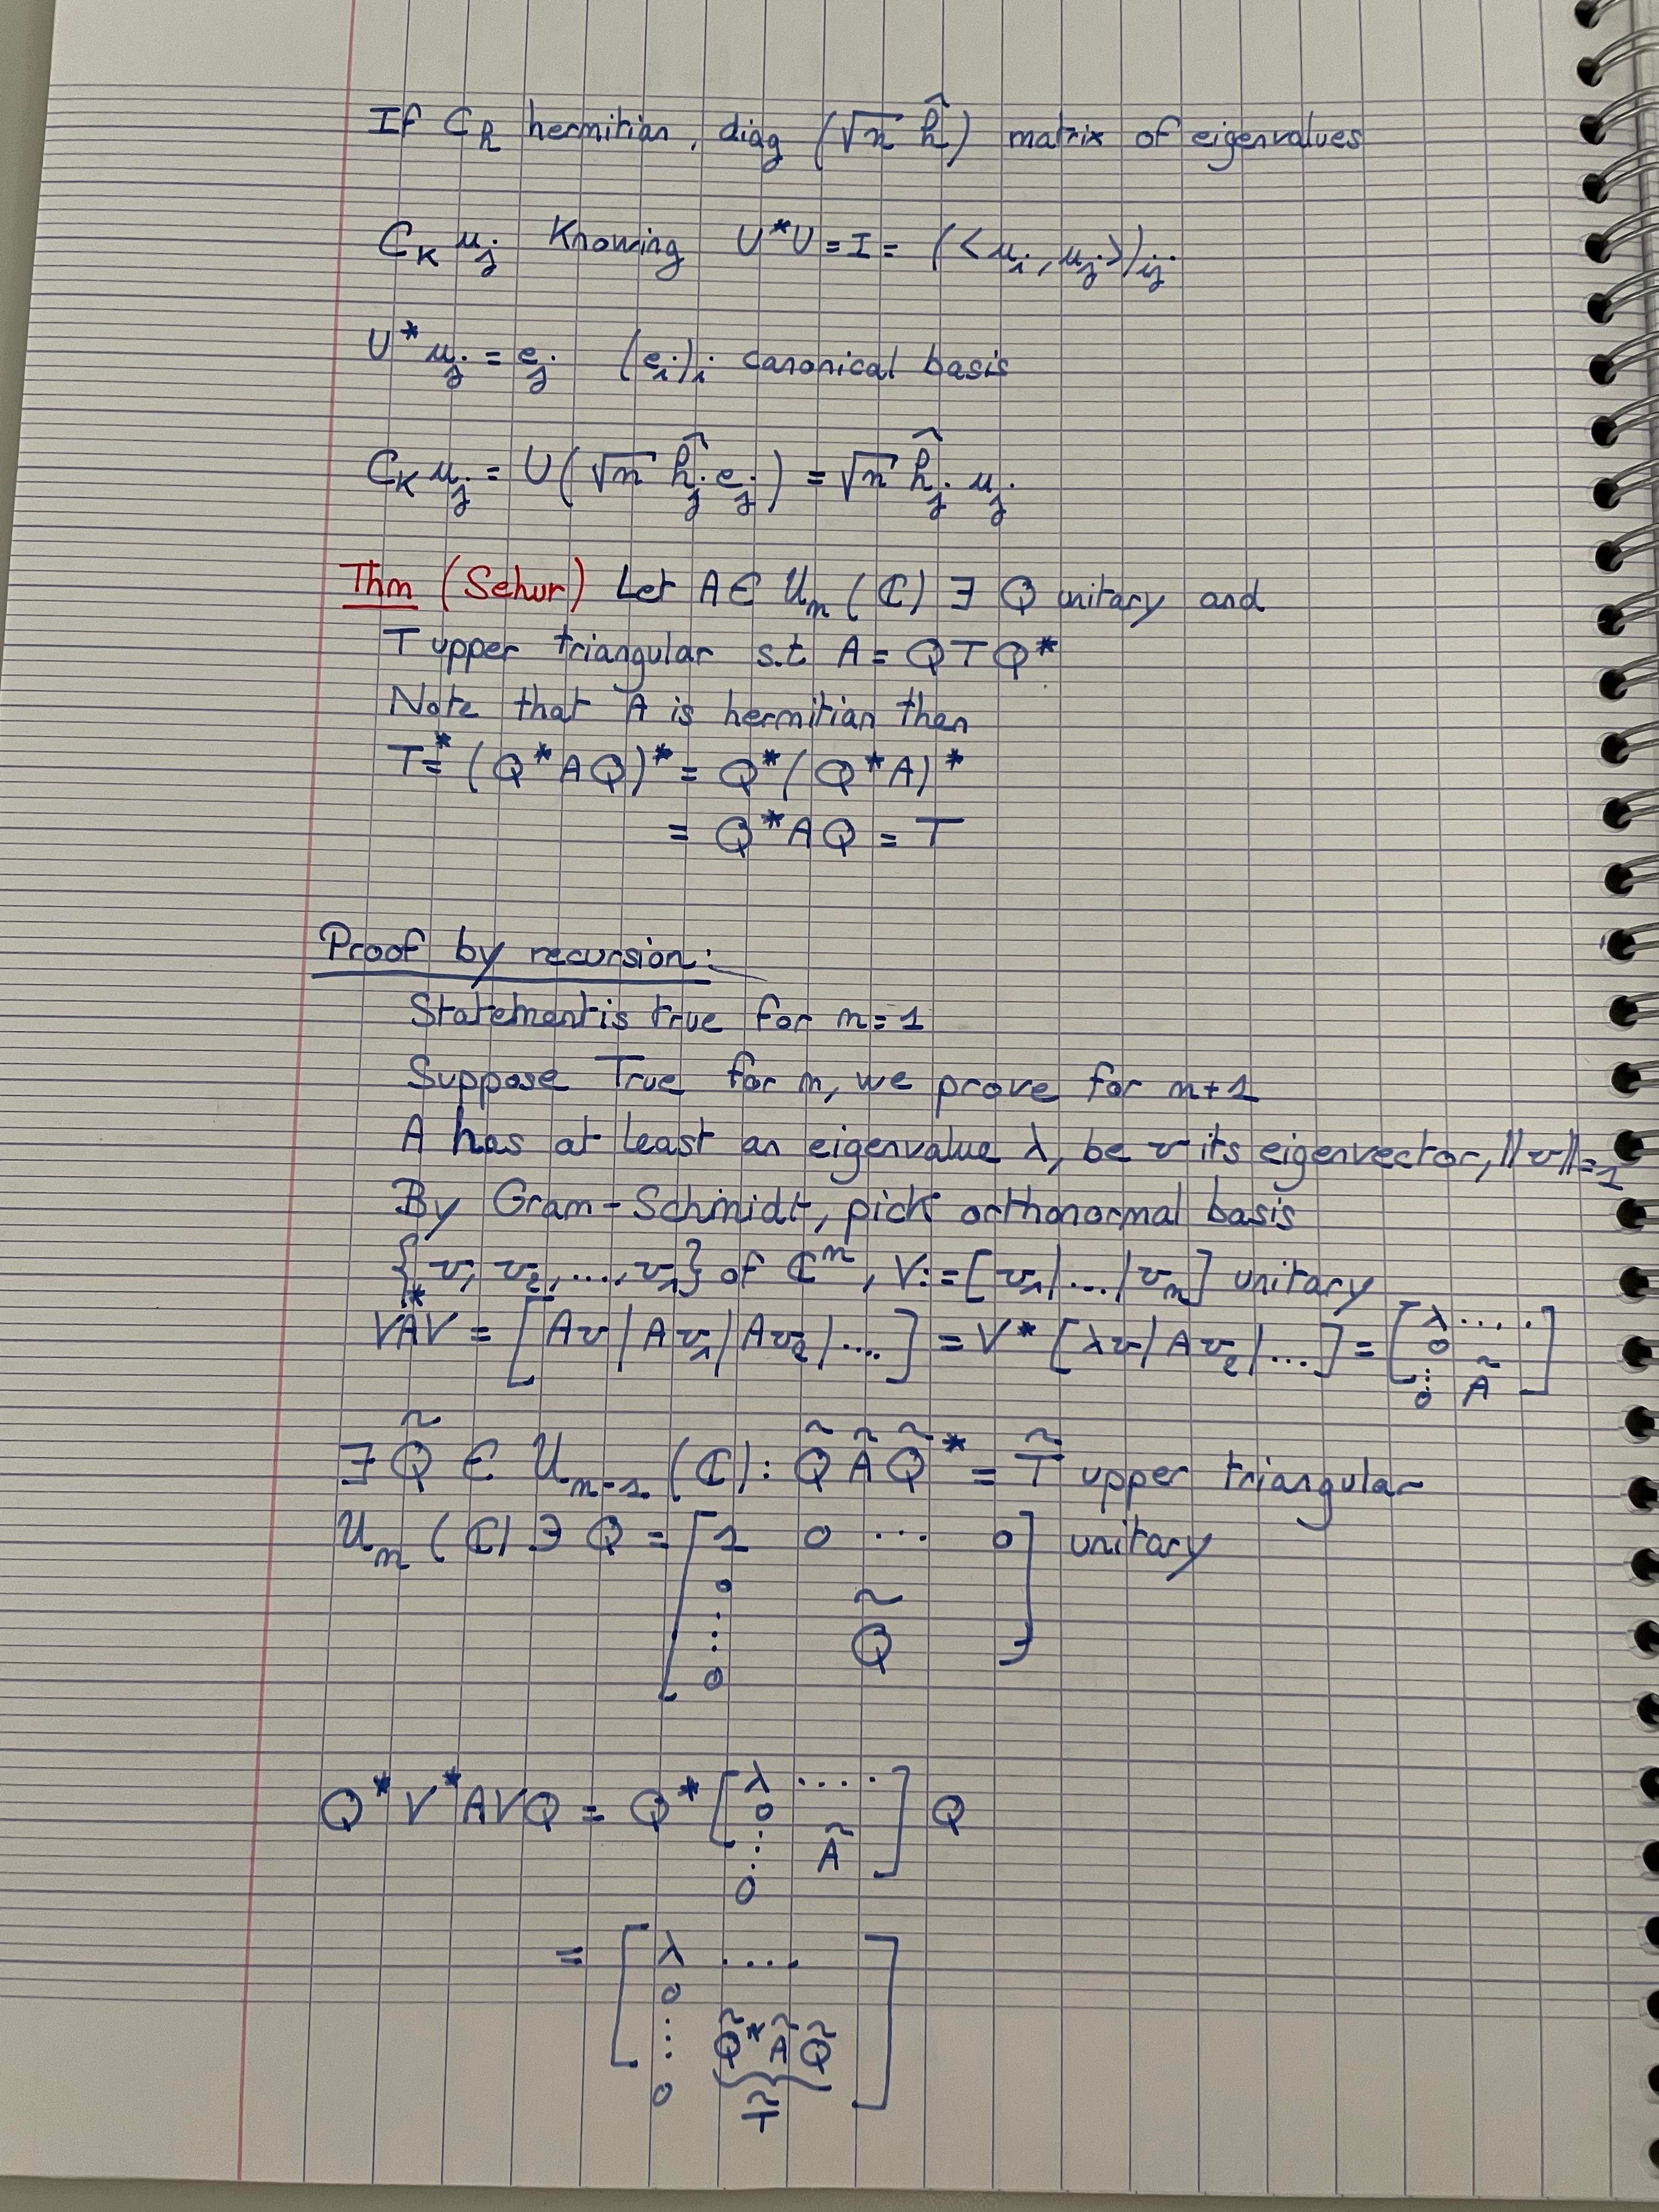 If C_h hermitian, diag (√n ĥ) matrix of eigenvalues
C_K u_j Knowing U*U = I = (<u_i, u_j>)_ij
U* u_j = e_j (e_i)_i canonical basis
C_K u_j = U(√n ĥ_j e_j) = √n ĥ_j u_j
Thm (Schur) Let A ∈ U_n (ℂ) ∃ Q unitary and
T upper triangular s.t A = QTQ*
Note that A is hermitian then
T* = (Q*AQ)* = Q*(Q*A)*
= Q*AQ = T
Proof by recursion:
Statement is true for n=1
Suppose True for n, we prove for n+1
A has at least an eigenvalue λ, be v its eigenvector, ||v||=1
By Gram-Schmidt, pick orthonormal basis
{v, v_2, ...., v_n} of ℂ^n, V:=[v_1|...|v_n] unitary
V*AV = [Av|Av_1|Av_2|....] = V* [λv|Av_2|...] = [λ ....
0
⋮ Ã
0]
∃ Q̃ ∈ U_n-1 (ℂ): Q̃ÃQ̃* = T̃ upper triangular
U_n (ℂ) ∋ Q = [1 0 ... 0] unitary
0
⋮ Q̃
0
Q*V*AVQ = Q* [λ ....] Q
0
⋮ Ã
0
= [λ ....]
0
⋮ Q̃*ÃQ̃
0 T̃